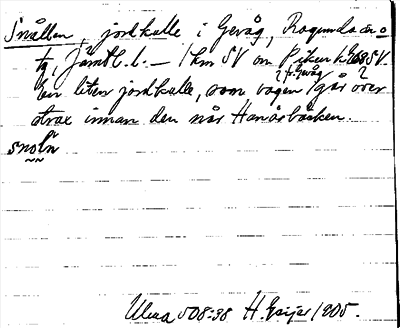 Snållen, jordkulle i Gevåg, Ragunda sn o
tg, Jämtl. l. — 1 km SV om
? t. Gevåg ?
En liten jordkulle, som vägen går över
strax innan den når Hanåsbäcken.
snoln
Ulma 508:38 H. Geijer 1905.